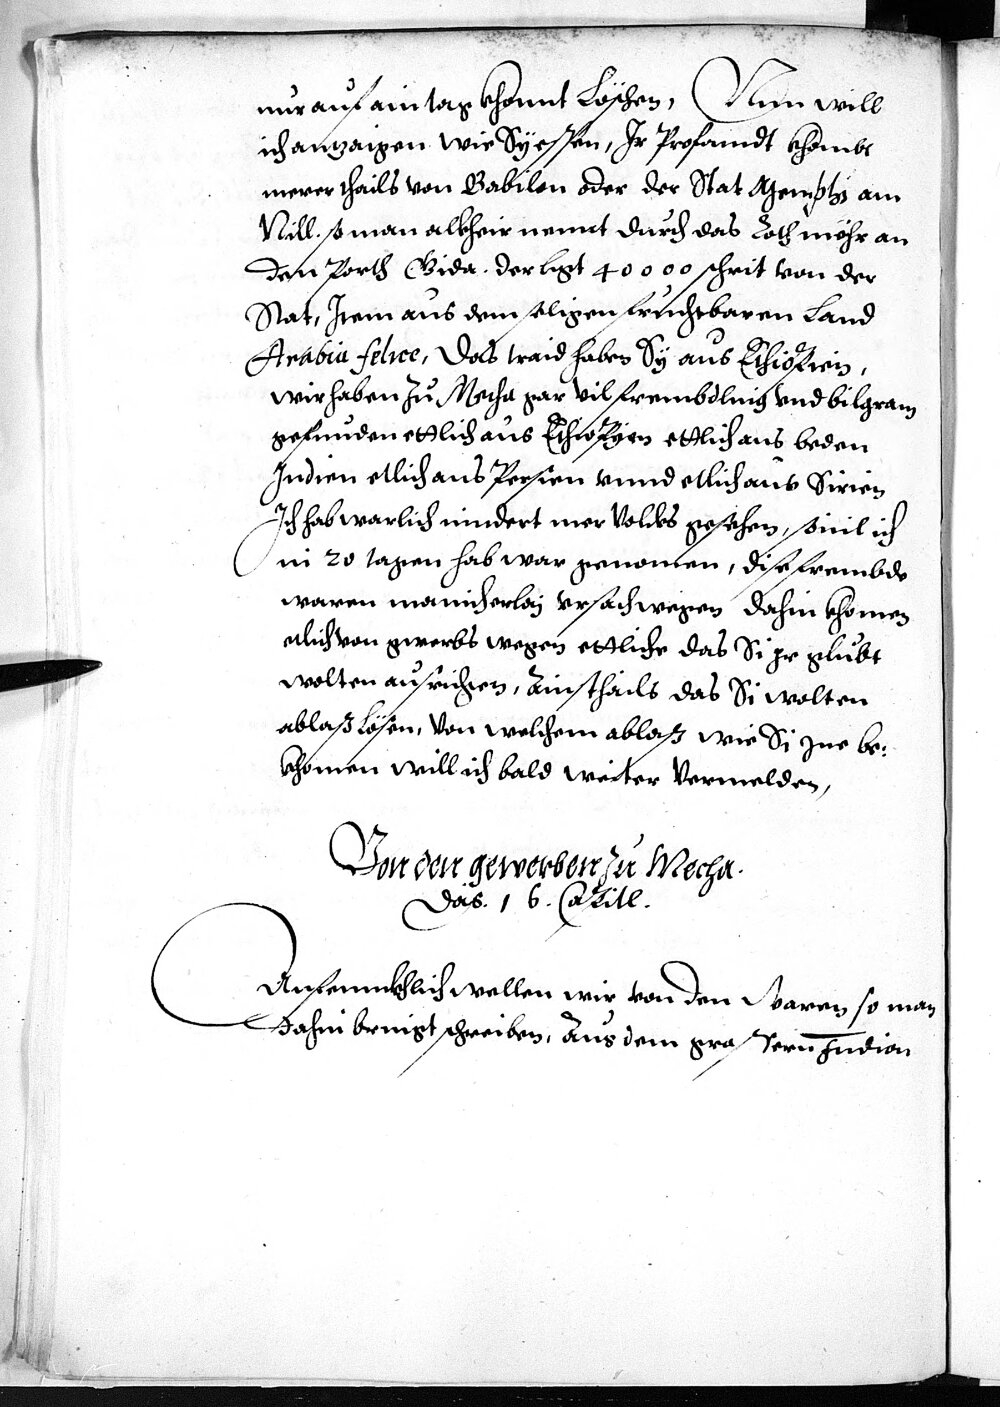 nur auf ain tag khönnt Löschen, Nun will
ich anzaigen wie Sy essen, Ir Profanndt khombt
merer thails von Babilon oder der Stat Memphis am
Nill. so man alkheir nennt durch das Roth möhr an
den Porth Gida. der ligt 40000 schrit von der
Stat, Item aus dem seligen fruchtbaren Land
Arabia felice, Das traid haben Sy aus Ethiopien,
wir haben zu Mecha gar vil frembdling vnd bilgram
gefunden ettlich aus Ethiopien ettlich aus beden
Indien etlich aus Persien vnnd etlich aus Sirien
Ich hab warlich nindert mer Volckhs gesehen, souil ich
in 20 tagen hab war genomen, dise frembde
waren manicherlaj vrsach wegen dahin khomen
etlich von gwerbs wegen ettliche das Si jr glubt
wolten ausrichten, Ainsthails das Si wolten
ablaß Lösen, von welchem ablaß wie Si jne be:
khomen will ich bald weiter Vermelden,
Von den gewerben zu Mecha.
Das. 16. Capitl.
Anfennckhlich wellen wir von den Waren so man
dahin bringt schreiben, Aus dem grossern Indien